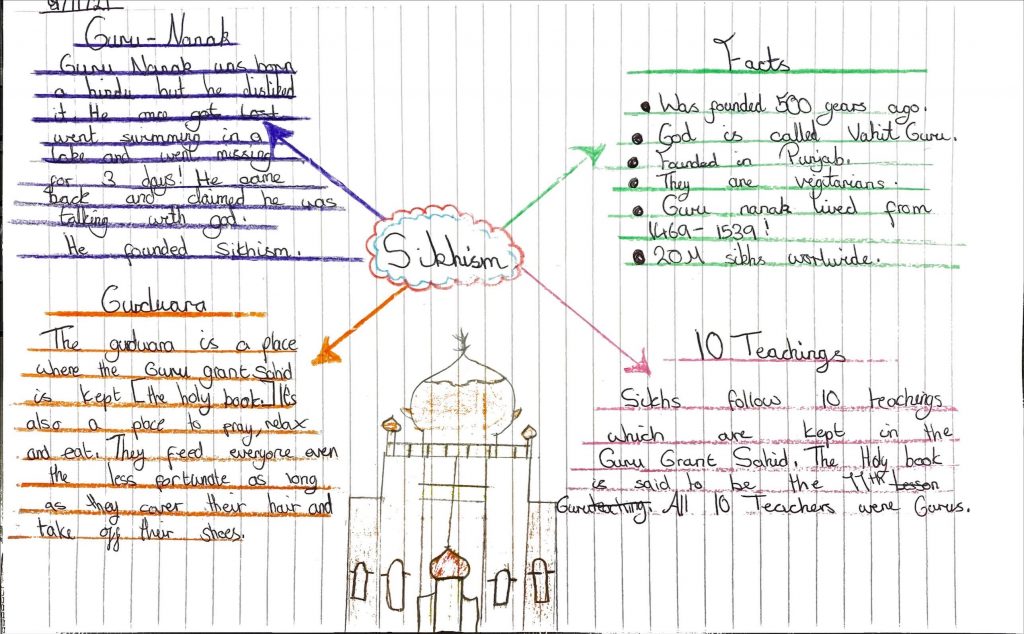 9/11/21
Guru - Nanak
Guru Nanak was born
a hindu but he disliked
it. He once got lost
went swimming in a
lake and went missing
for 3 days! He came
back and claimed he was
talking with god.
He founded Sikhism.
Facts
• Was founded 500 years ago.
• God is called Vahit Guru.
• Founded in Punjab.
• They are vegitarians.
• Guru nanak lived from
1469 - 1539!
• 20M sikhs worlwide.
Sikhism
Gurduara
The gurduara is a place
where the Guru grant Sahid
is kept [the holy book.] It's
also a place to pray, relax
and eat. They feed everyone even
the less fortunate as long
as they cover their hair and
take off their shoes.
10 Teachings
Sikhs follow 10 teachings
which are kept in the
Guru Grant Sahid. The Holy book
is said to be the 11th lesson
Guru teaching. All 10 Teachers were Gurus.